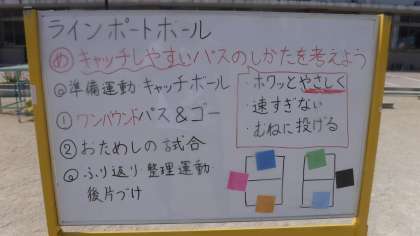 ラインポートボール
め キャッチしやすいパスのしかたを考えよう
◎準備運動 キャッチボール
① ワンバウンドパス＆ゴー
② おためしの試合
◎ふり返り 整理運動
後片づけ
・ホワッとやさしく
・速すぎない
・むねに投げる